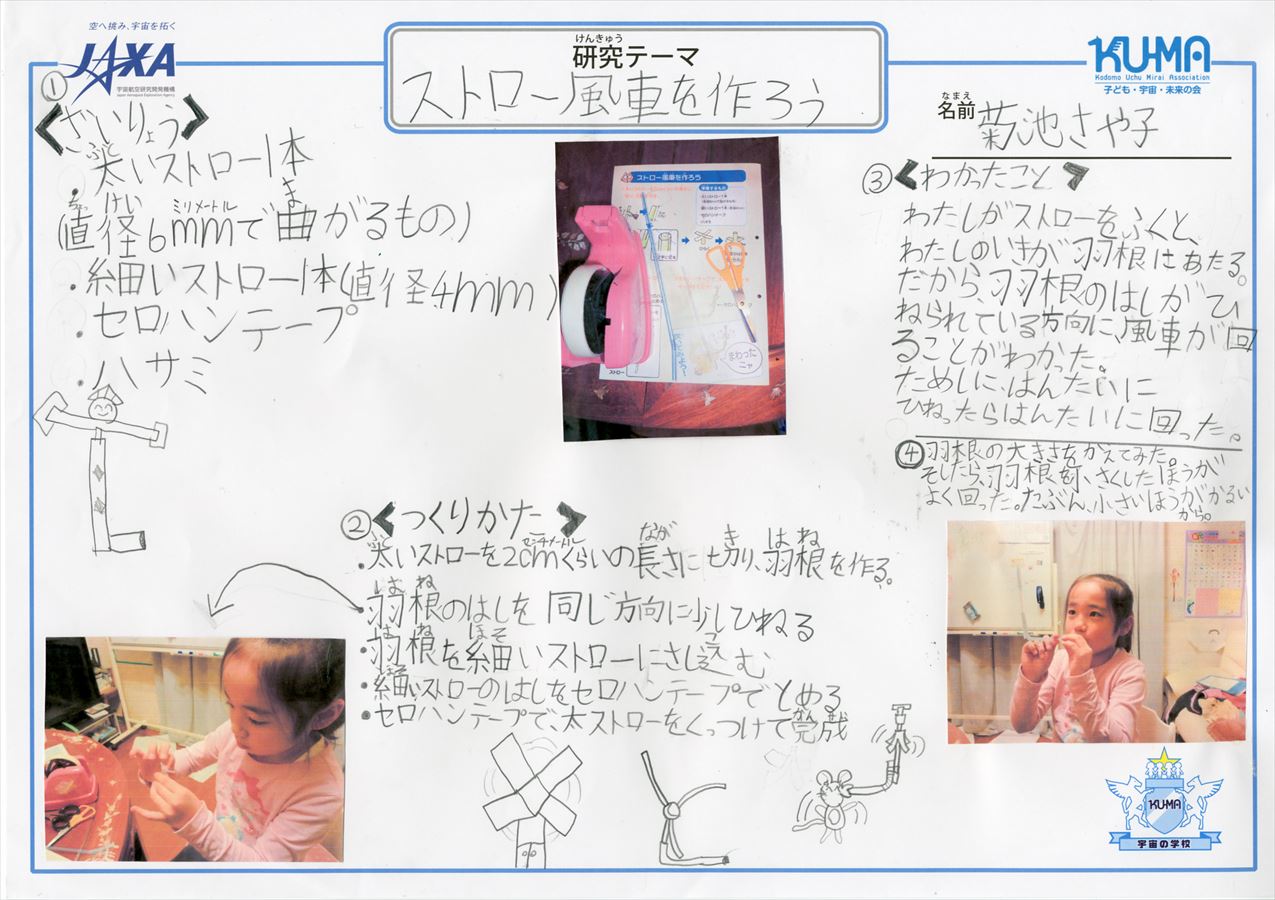 空へ挑み、宇宙を拓く
JAXA
宇宙航空研究開発機構
Japan Aerospace Exploration Agency
けんきゅう
研究テーマ
ストロー風車を作ろう
KU-MA
Kodomo Uchu Mirai Association
子ども・宇宙・未来の会
なまえ
名前 菊池さや子
①
<ざいりょう>
ふと
・太いストロー1本
ちょっけい ミリメートル ま
(直径6mmで曲がるもの)
・細いストロー1本(直径4mm)
・セロハンテープ
・ハサミ
ストロー風車を作ろう
まわったニャ
②<つくりかた>
ふと センチメートル なが き はね
・太いストローを2cmくらいの長さに切り、羽根を作る。
はね
・羽根のはしを同じ方向に少しひねる
はね ほそ こ
・羽根を細いストローにさし込む
ほそ
・細いストローのはしをセロハンテープでとめる
かんせい
・セロハンテープで、太ストローをくっつけて完成
③<わかったこと>
わたしがストローをふくと、
わたしのいきが羽根にあたる。
だから、羽根のはしがひ
ねられている方向に、風車が回
ることがわかった。
ためしに、はんたいに
ひねったらはんたいに回った。
④羽根の大きさをかえてみた。
そしたら、羽根を小さくしたほうが
よく回った。たぶん、小さいほうがかるい
から。
KU-MA
宇宙の学校